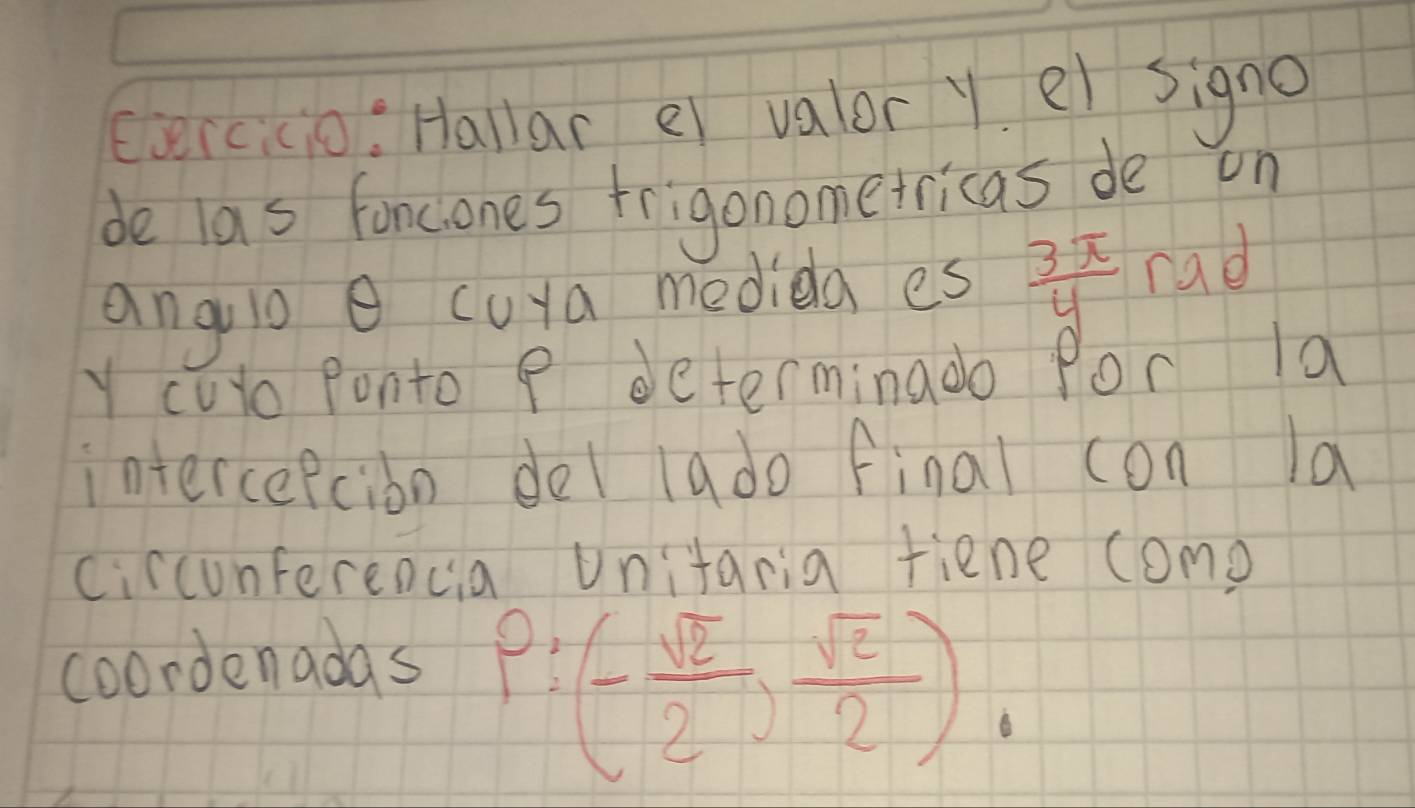 Ejercicio: Hallar el valor y el signo
de las funciones trigonometricas de un
angulo θ cuya medida es 3π/4 rad
y cuyo punto P determinado por la
intercepción del lado final con la
circunferencia unitaria tiene como
coordenadas P:(-√2/2, √2/2).